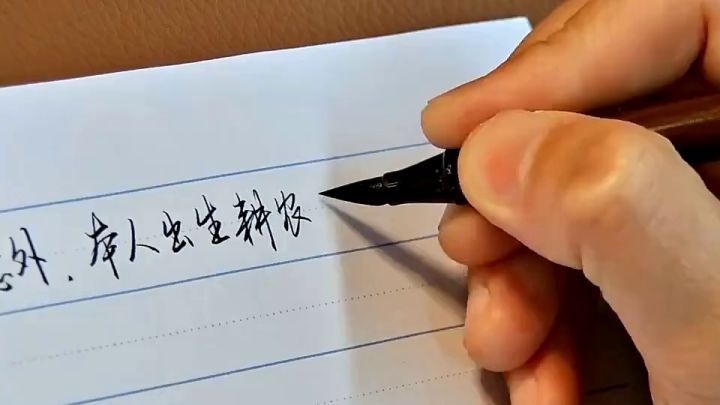 外.本人出生耕农